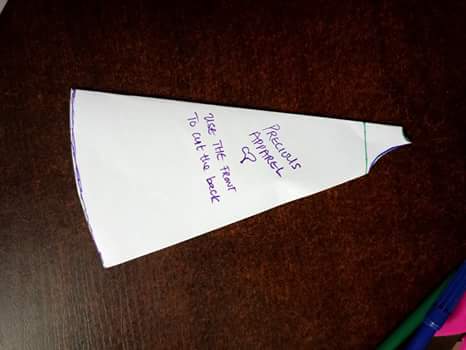 PRECIOUS
APPAREL
USE THE FRONT
To cut the back